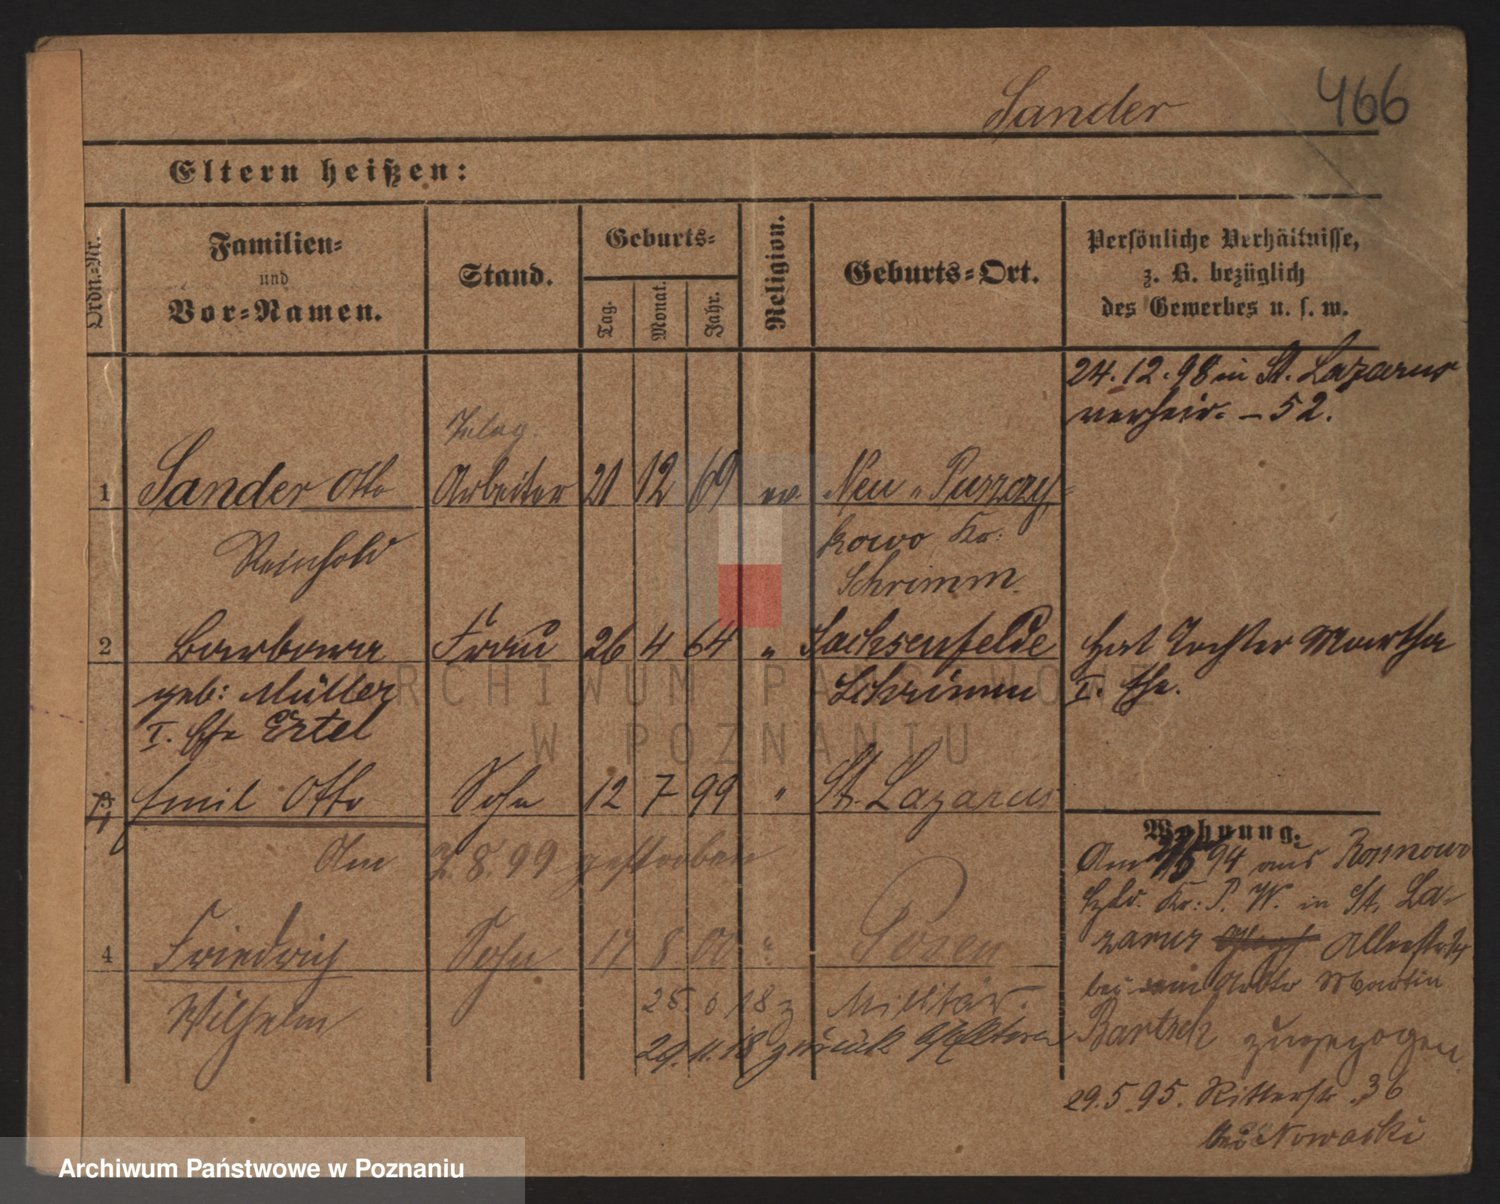 Sander
466
Eltern heißen:
Ordn.-Nr.
Familien-
und
Vor-Namen.
Stand.
Geburts-
Tag.
Monat.
Jahr.
Religion.
Geburts-Ort.
Persönliche Verhältnisse,
z. B. bezüglich
des Gewerbes u. s. w.
24.12.98 in St. Lazarus
verheir. – 52.
1 Sander Otto Arbeiter 21 12 69 ev Neu-Purzczy-
Reinhold
kowo Kr:
Schrimm.
2 Barbara Frau 26 4 64 " Sachsenfelde
geb: Müller Schrimm
I. Ehe Ertel
hat Tochter Martha
I. Ehe.
Emil Otto Sohn 12 7 99 " St. Lazarus
Am 2.8.99 gestorben
4 Friedrich Sohn 17 8 00 " Posen
Wilhelm
18 z Militär.
29.11.18 zurück
Wohnung.
Am 94 aus Rosnowo
Kr: P. W. in St. La-
zarus
bei Martin
Bartsch zugezogen.
29.5.95. Ritterstr. 36
bei Nowacki
ARCHIWUM PAŃSTWOWE
W POZNANIU
Archiwum Państwowe w Poznaniu